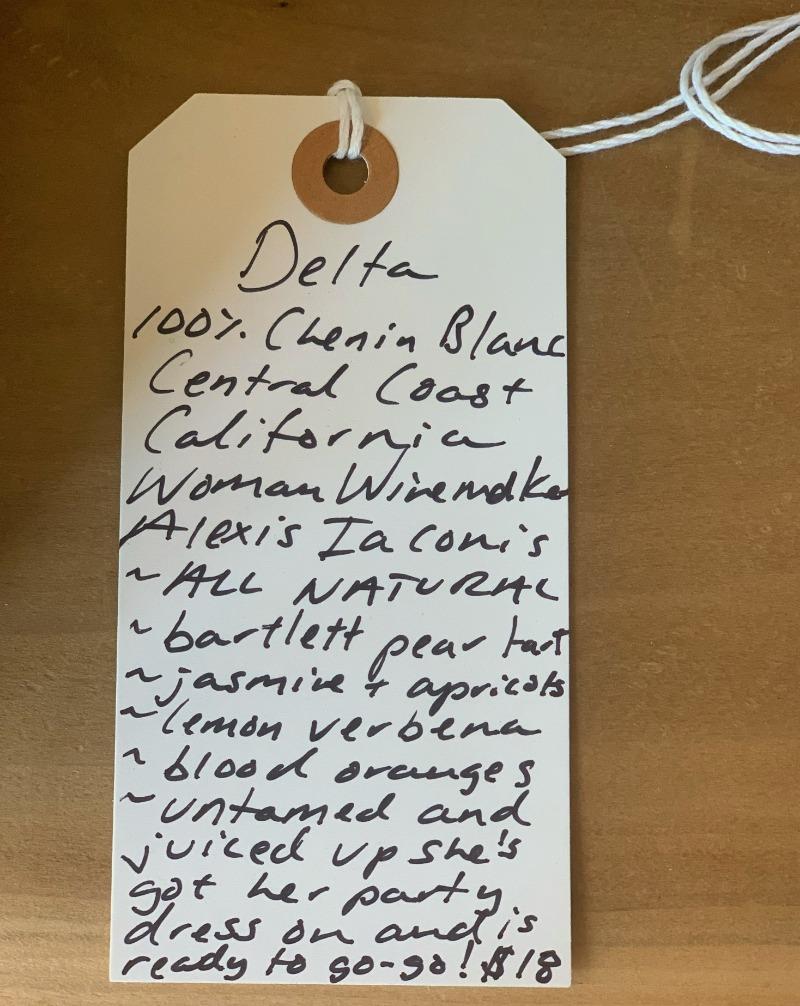 Delta
100% Chenin Blanc
Central Coast
California
Woman Winemaker
Alexis Iaconis
~ALL NATURAL
~bartlett pear tart
~jasmine + apricots
~lemon verbena
~blood oranges
~untamed and
juiced up she's
got her party
dress on and is
ready to go-go! $18